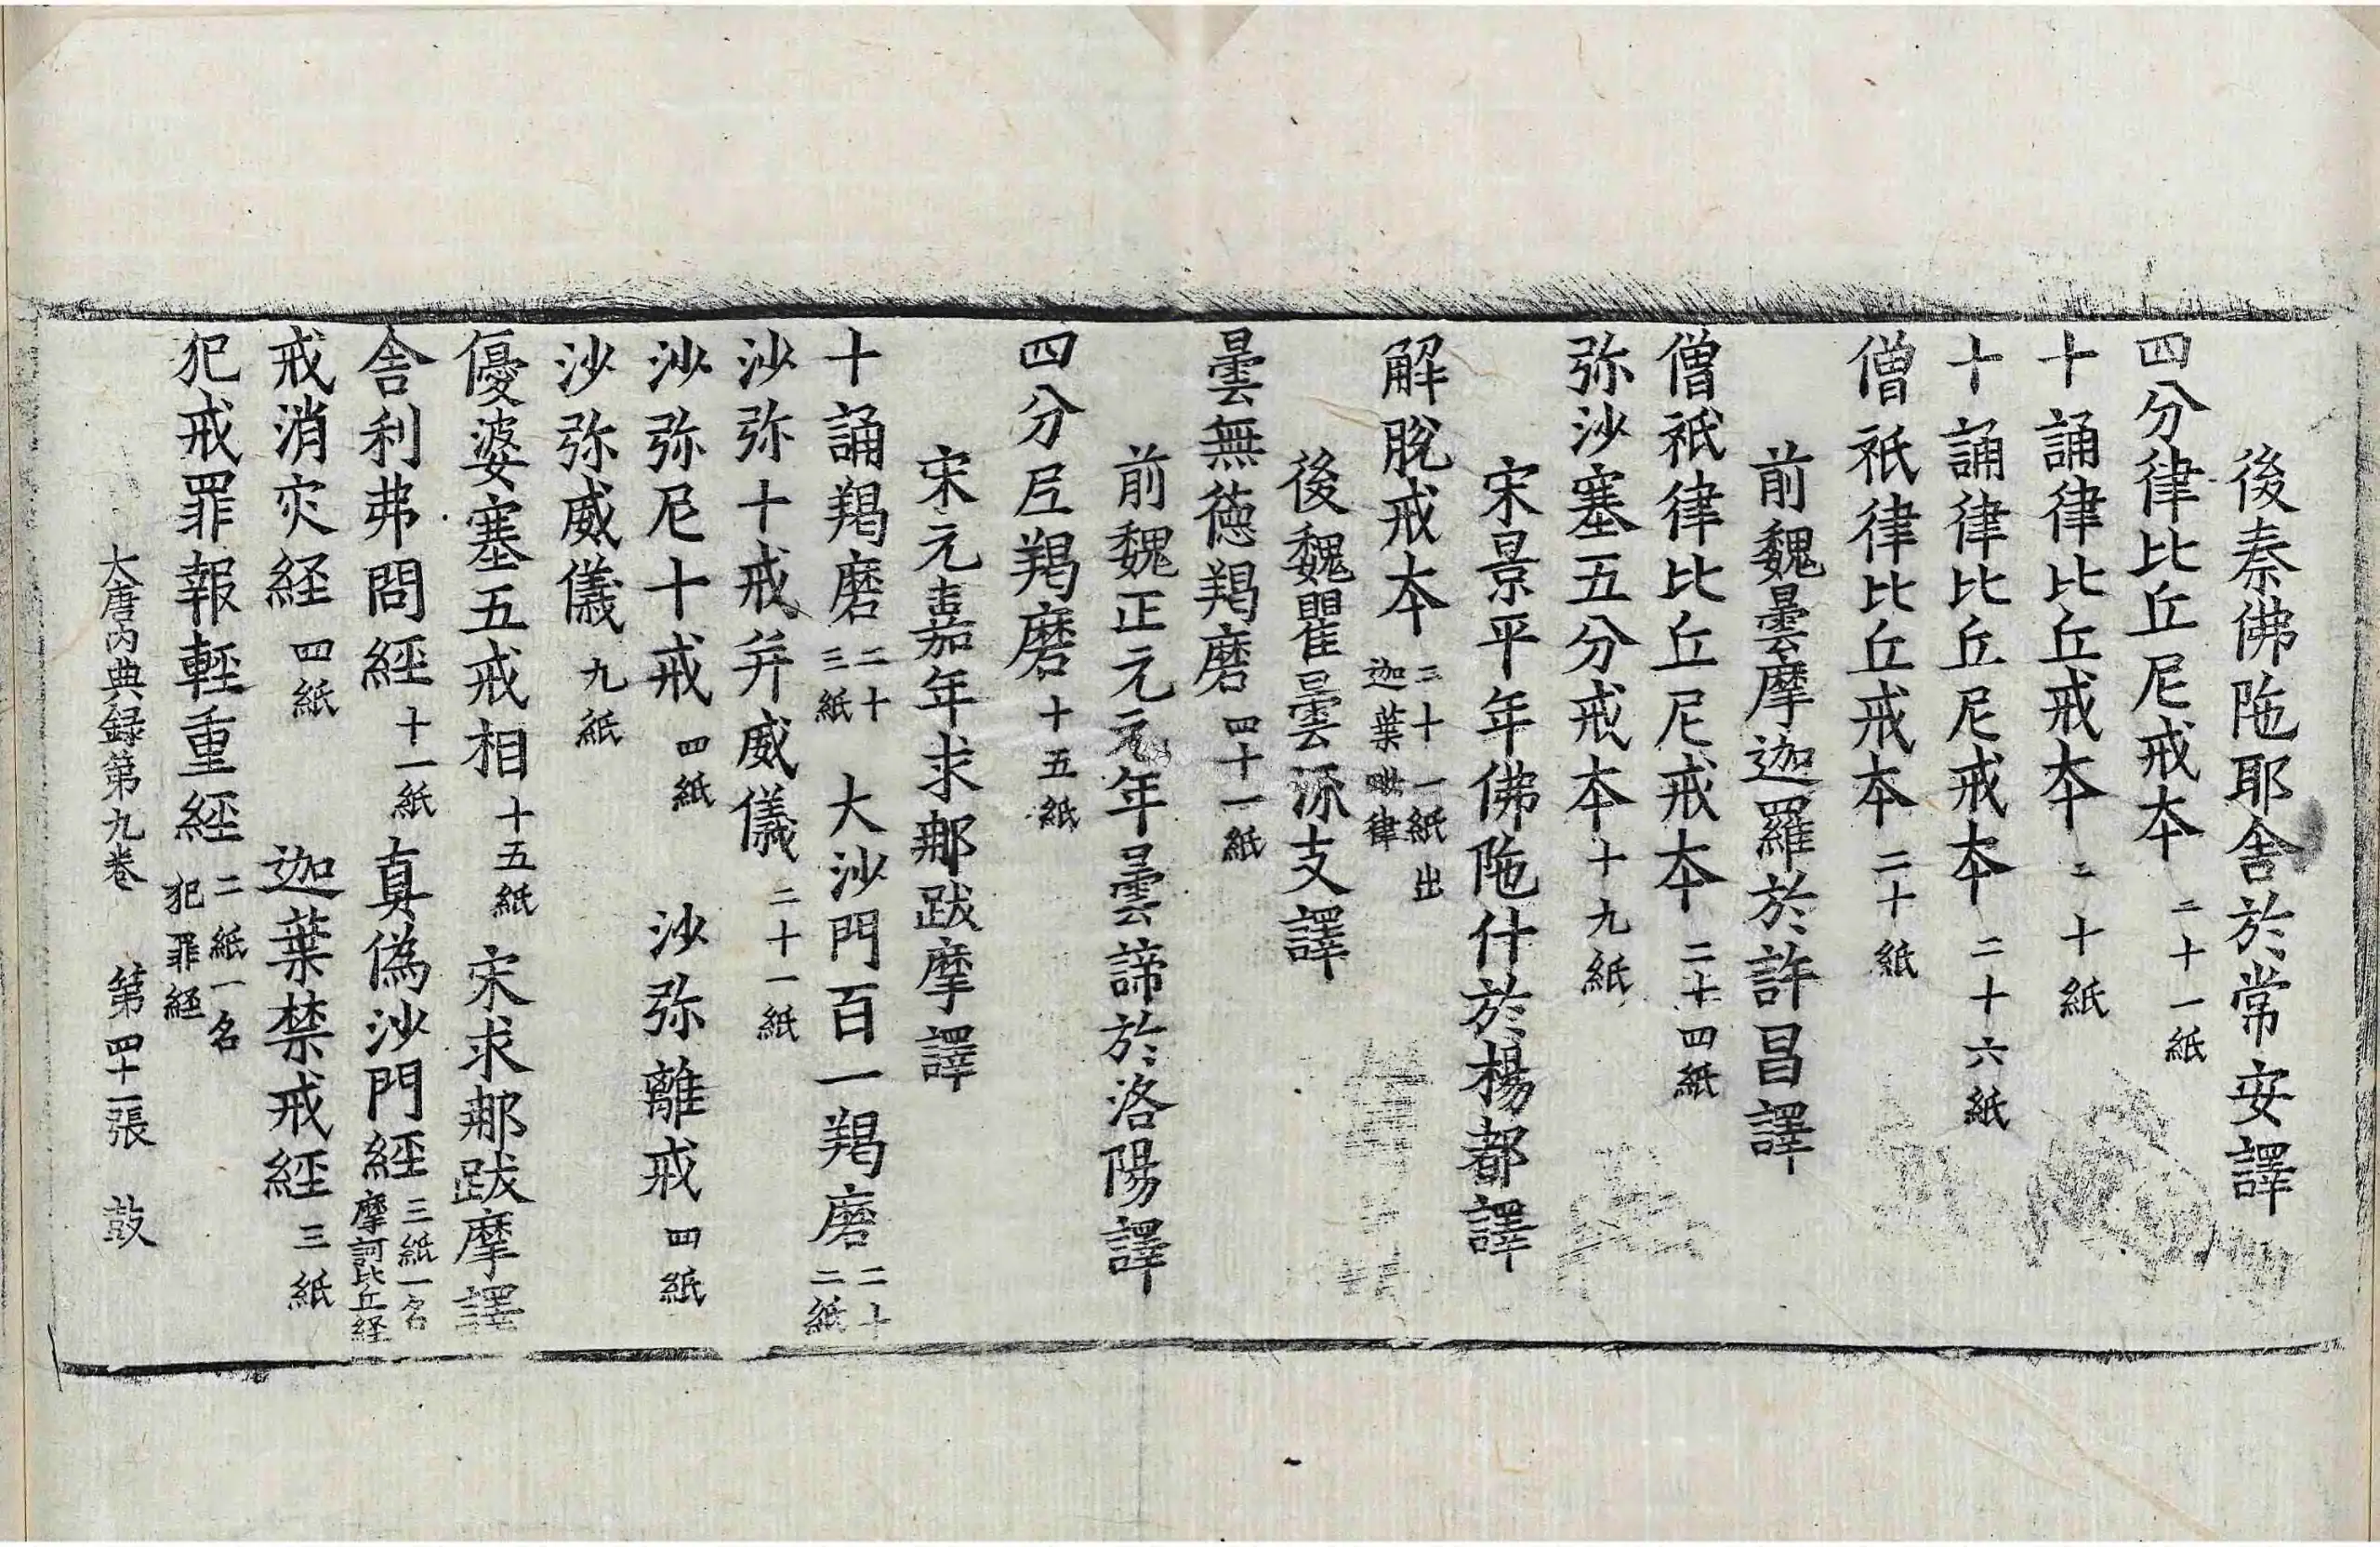 後秦佛陁耶舍於常安譯
四分律比丘尼戒本二十一紙
十誦律比丘戒本二十紙
十誦律比丘尼戒本二十六紙
僧祇律比丘戒本二十紙
前魏曇摩迦羅於許昌譯
僧祇律比丘尼戒本二十四紙
弥沙塞五分戒本十九紙
宋景平年佛陁什於楊都譯
解脫戒本二十一紙出迦葉毗律
後魏瞿曇流支譯
曇無德羯磨四十一紙
前魏正元元年曇諦於洛陽譯
四分尼羯磨十五紙
宋元嘉年求那跋摩譯
十誦羯磨二十三紙 大沙門百一羯磨二十二紙
沙弥十戒并威儀二十一紙
沙弥尼十戒四紙 沙弥離戒四紙
沙弥威儀九紙
優婆塞五戒相十五紙 宋求那跋摩譯
舍利弗問經十一紙 真偽沙門經三紙一名摩訶比丘経
戒消灾経四紙 迦葉禁戒經三紙
犯戒罪報輕重經二紙一名犯罪経
大唐內典録第九卷 第四十一張 鼓